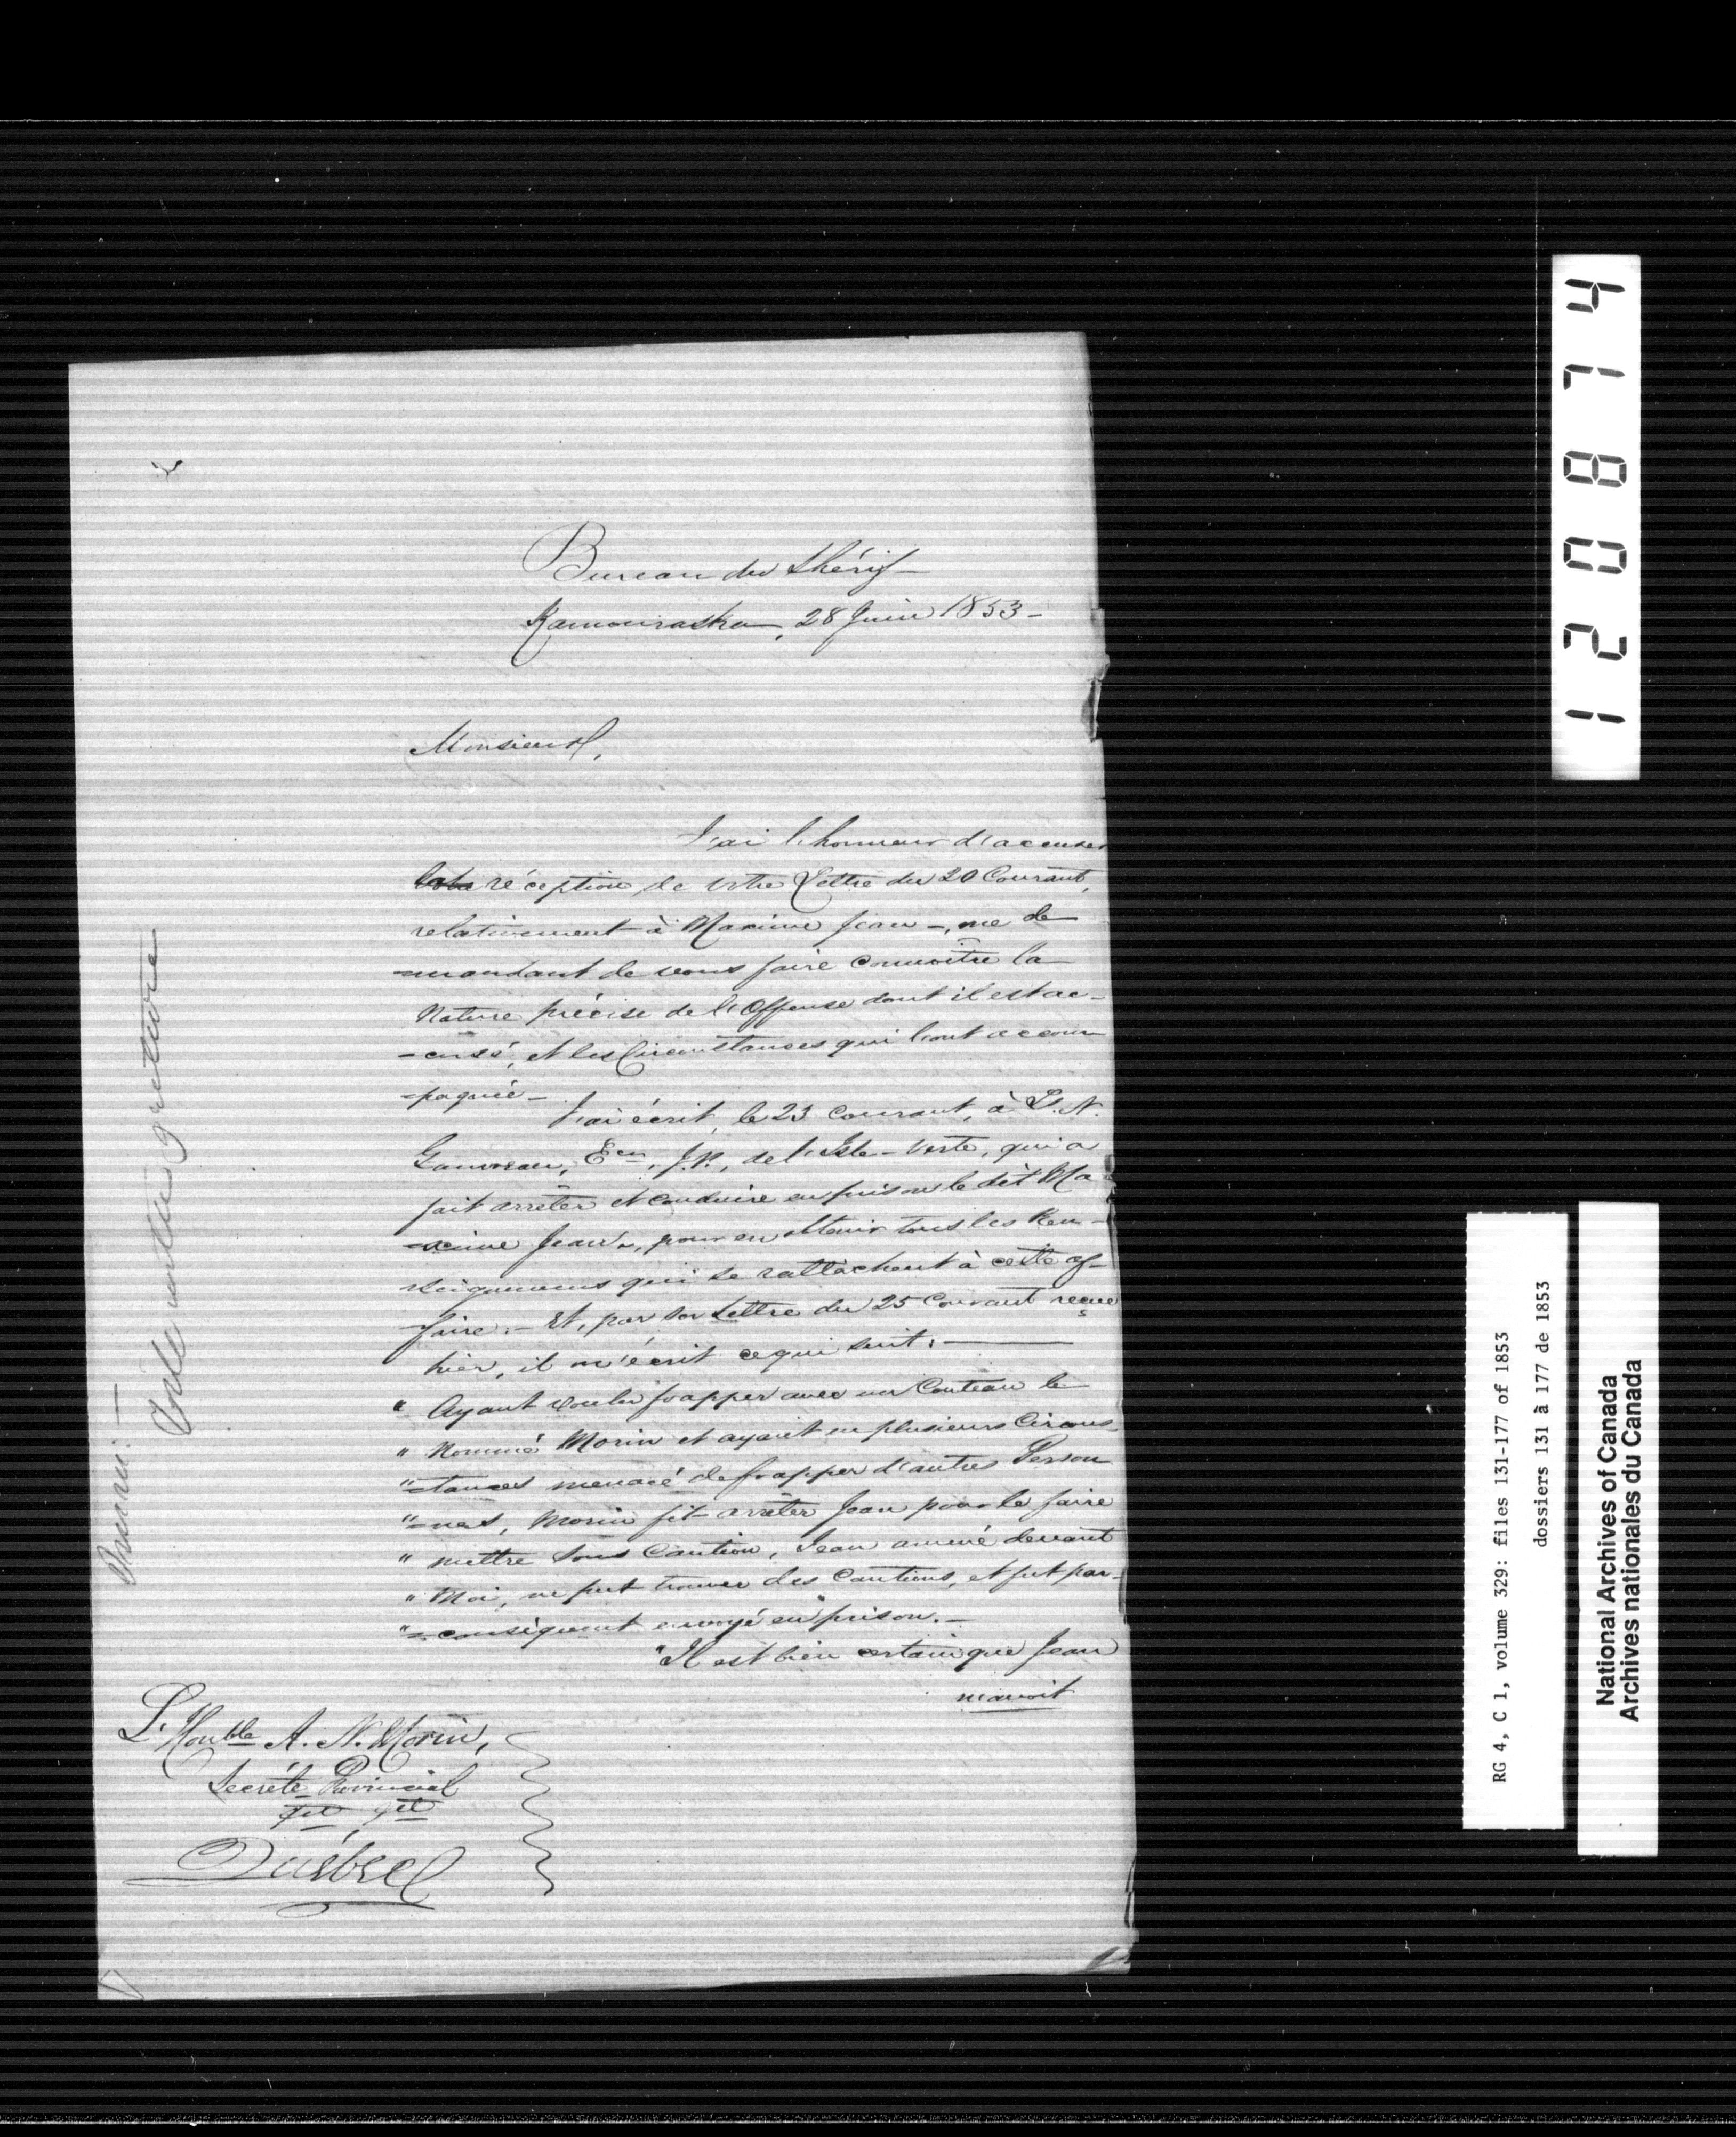 Bureau du Shérif –
Kamouraska, 28 Juin 1853 –
Monsieur,
J'ai l'honneur d'accuser
réception de votre Lettre du 20 Courant,
relativement à Maxime Jean –, me de
-mandant de vous faire connoître la
Nature précise de l'Offense dont il est ac-
-cusé, et les Circonstances qui l'ont accom
-pagnée –
J'ai écrit, le 23 Courant, à L. N.
Gauvreau, Ecr, J.P., de l'Isle-Verte, qui a
fait arrêter et conduire en prison le dit Ma
-xime Jean, pour en obtenir tous les Ren-
seignemens qui se rattachent à cette af-
-faire. – Et, par sa Lettre du 25 Courant reçue
hier, il m'écrit ce qui suit: –
" Ayant voulu frapper avec un Couteau le
" Nommé Morin et ayant en plusieurs Circons-
"-tances menacé de frapper d'autres Person
"-nes, Morin fit arrêter Jean pour le faire
" mettre sous Caution, Jean amené devant
" Moi, ne put trouver des Cautions, et fut par-
"-conséquent envoyé en prison. –
"Il est bien certain que Jean
n'avoit
L'Honble A. N. Morin,
Secréte Provincial
Québec
1 2 0 8 7 4
RG 4, C 1, volume 329: files 131-177 of 1853
dossiers 131 à 177 de 1853
National Archives of Canada
Archives nationales du Canada